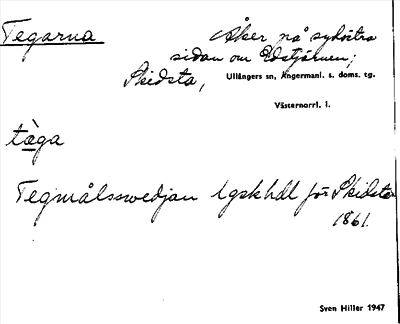 Tegarna
Åker på sydvästra
sidan om Edstjärnen;
Skidsta, Ullångers sn, Ångermanl. s. doms. tg.
Västernorrl. l.
tæga
Tegmålsswedjan lgskhdl för Skidsta
1861.
Sven Hiller 1947